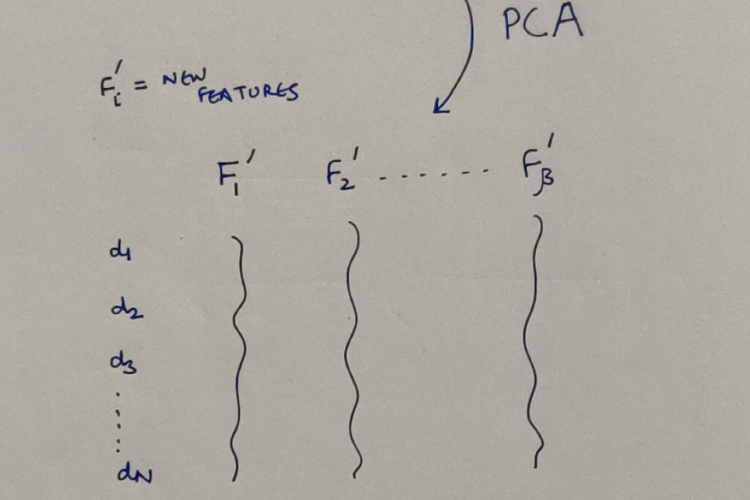 PCA
Fᵢ′ = NEW
FEATURES
F₁′ F₂′ ...... Fᵦ′
d₁
d₂
d₃
......
dN